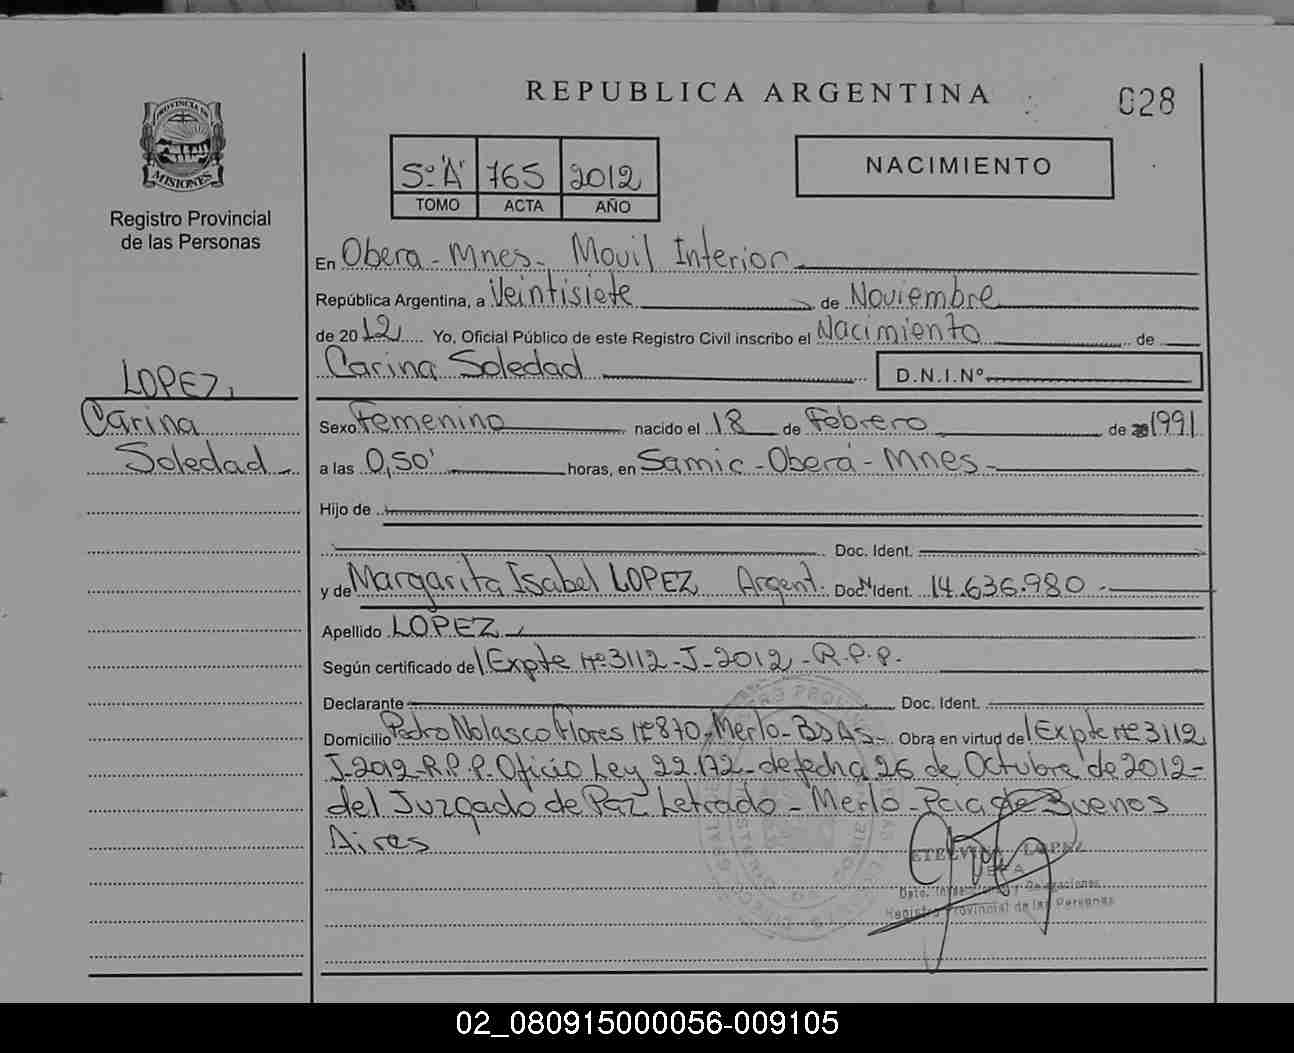 REPUBLICA ARGENTINA
028
PROVINCIA DE
MISIONES
Registro Provincial
de las Personas
5º "A" 765 2012
TOMO ACTA AÑO
NACIMIENTO
En Obera - Mnes - Movil Interior
República Argentina, a Veintisiete de Noviembre
de 2012 Yo, Oficial Público de este Registro Civil inscribo el Nacimiento de
Carina Soledad D.N.I.Nº
LOPEZ,
Carina
Soledad
Sexo Femenino nacido el 18 de Febrero de 1991
a las 0,50' horas, en Samic - Oberá - Mnes -
Hijo de
Doc. Ident.
y de Margarita Isabel LOPEZ Argent. Doc. Ident. 14.636.980 -
Apellido LOPEZ
Según certificado de Expte Nº 3112 - J - 2012 - R.P.P.
Declarante Doc. Ident.
Domicilio Pedro Nolasco Flores Nº 870 - Merlo - BsAs - Obra en virtud de Expte Nº 3112
J-2012-R.P.P. Oficio Ley 22.172 - de fecha 26 de Octubre de 2012 -
del Juzgado de Paz Letrado - Merlo - Pcia de Buenos
Aires
ETELVINA LOPEZ
JEFA
Dpto. Inspecciones y Delegaciones
Registro Provincial de las Personas
02_080915000056-009105